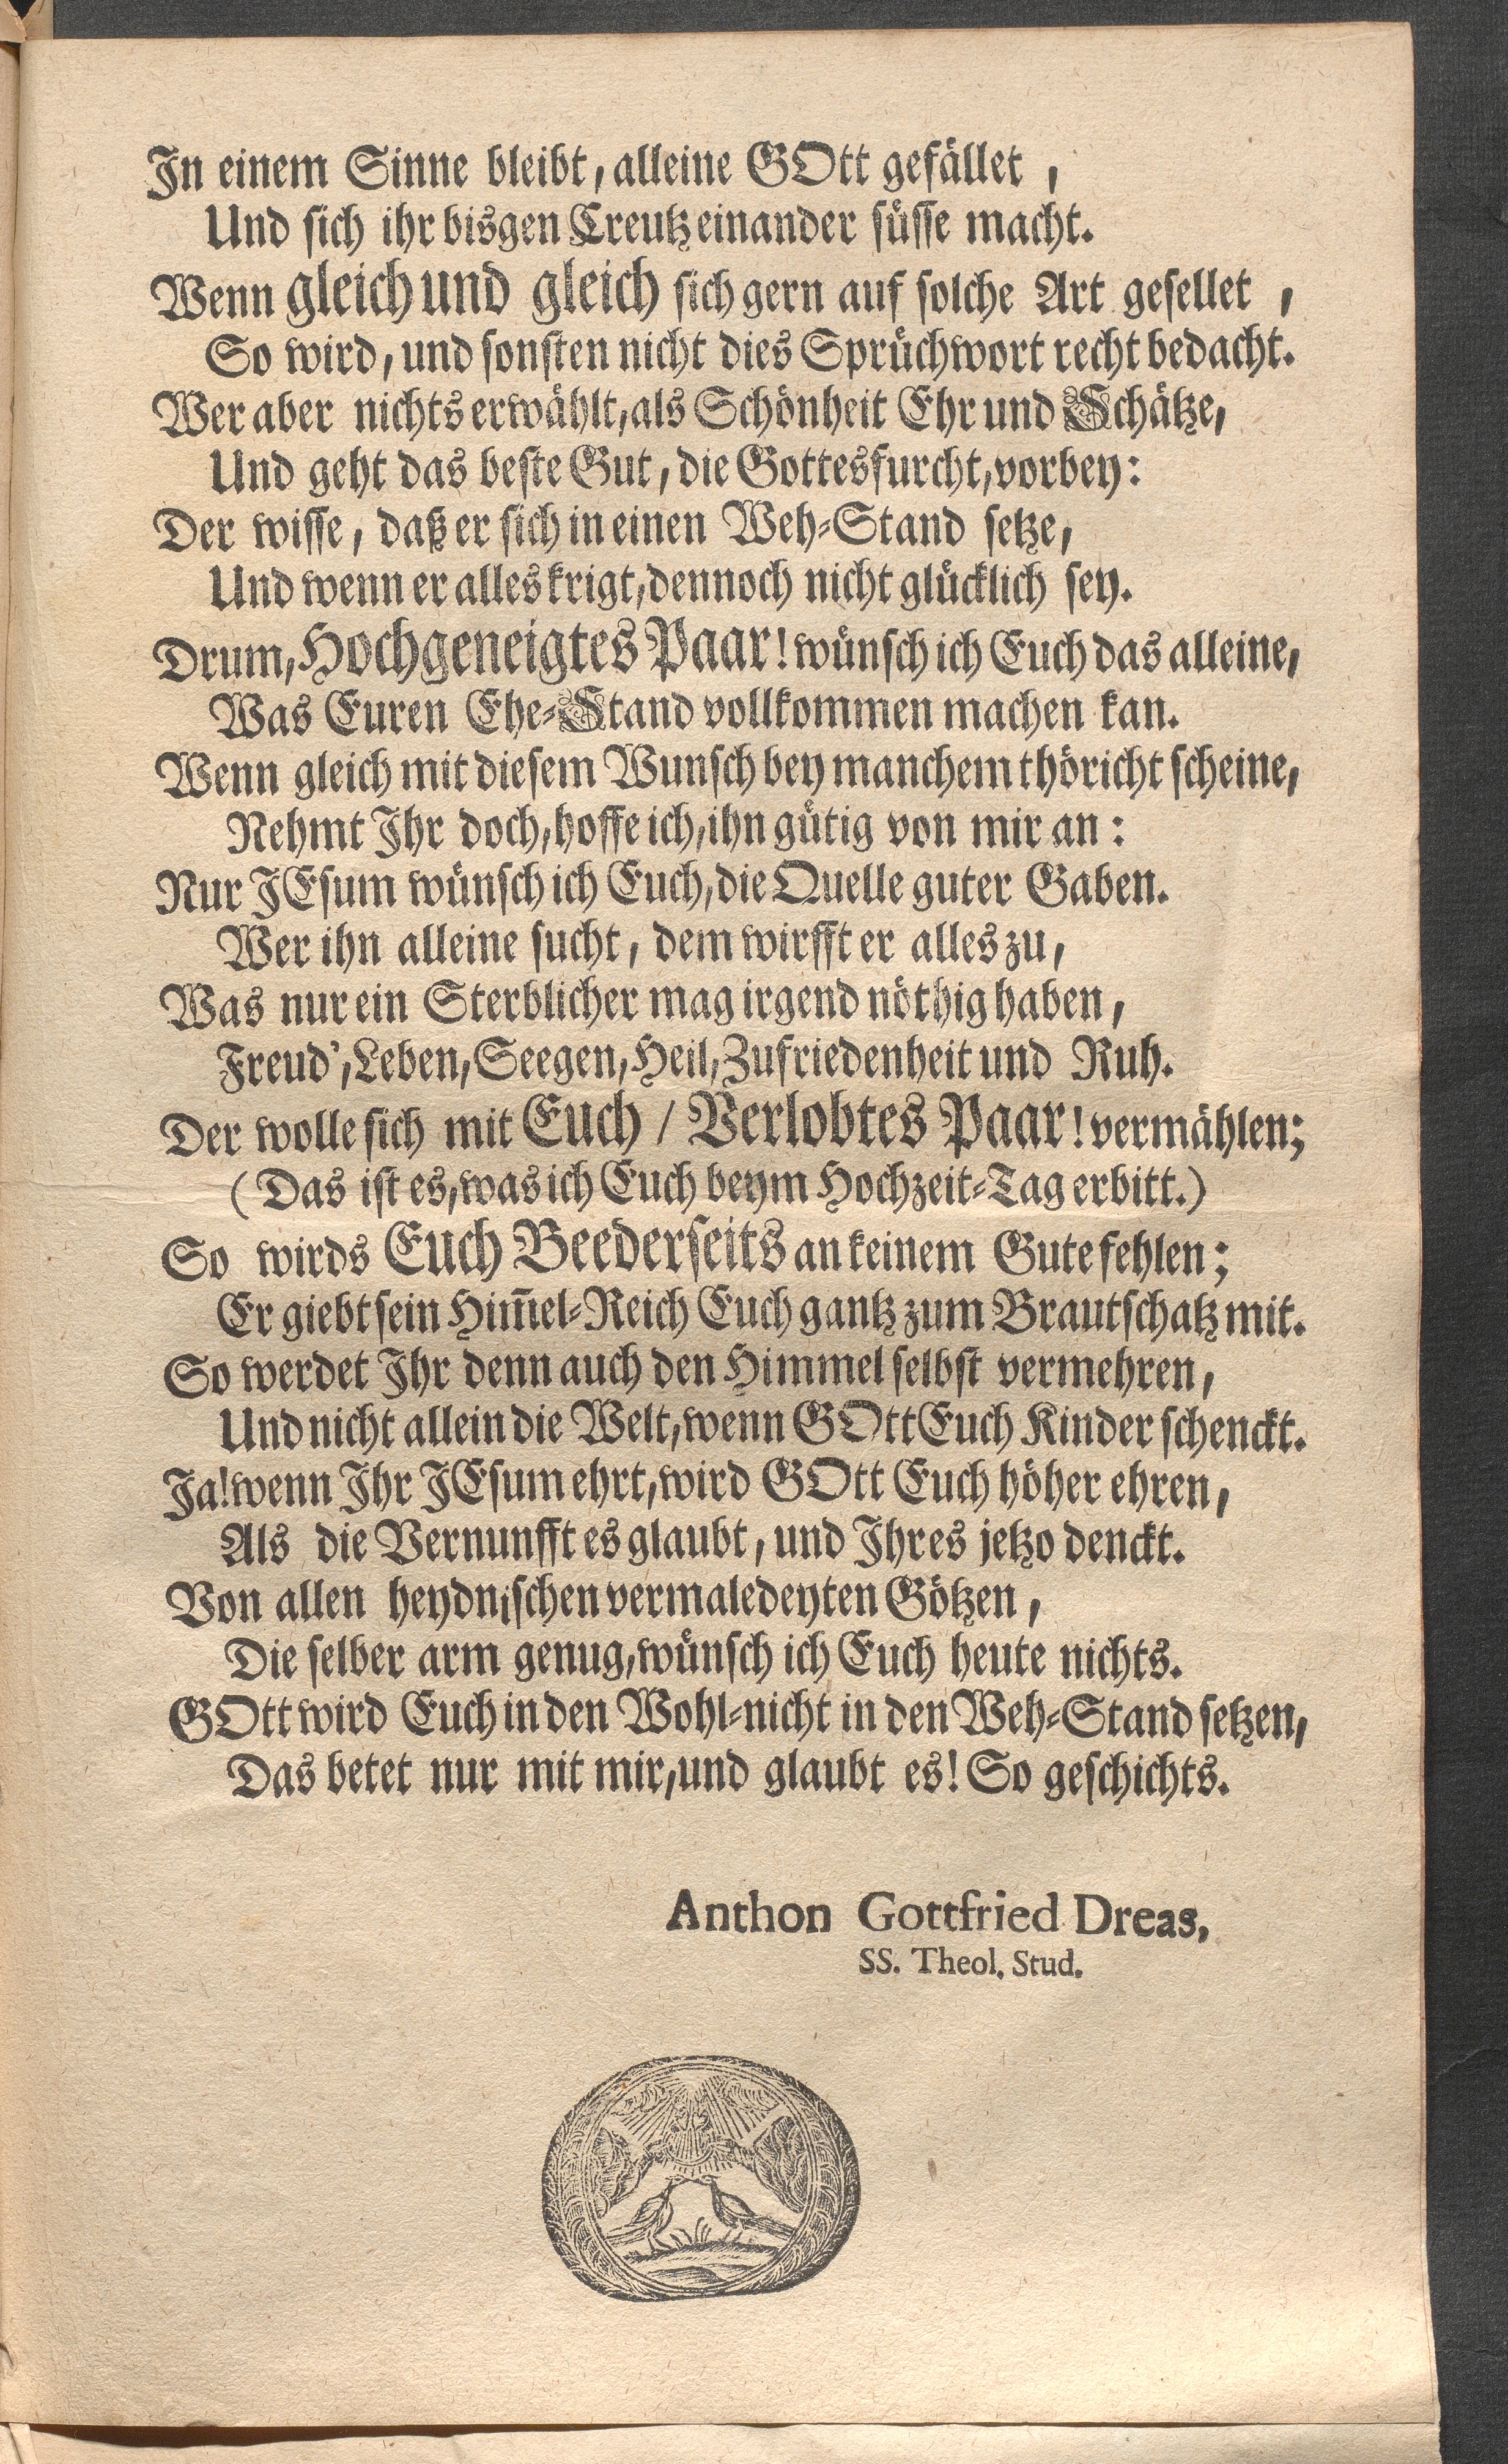 In einem Sinne bleibt, alleine GOtt gefället,
Und sich ihr bisgen Creutz einander süsse macht.
Wenn gleich und gleich sich gern auf solche Art gesellet,
So wird, und sonsten nicht dies Sprüchwort recht bedacht.
Wer aber nichts erwählt, als Schönheit Ehr und Schätze,
Und geht das beste Gut, die Gottesfurcht, vorbey:
Der wisse, daß er sich in einen Weh-Stand setze,
Und wenn er alles krigt, dennoch nicht glücklich sey.
Drum, Hochgeneigtes Paar! wünsch ich Euch das alleine,
Was Euren Ehe-Stand vollkommen machen kan.
Wenn gleich mit diesem Wunsch bey manchem thöricht scheine,
Nehmt Ihr doch, hoffe ich, ihn gütig von mir an:
Nur JEsum wünsch ich Euch, die Quelle guter Gaben.
Wer ihn alleine sucht, dem wirfft er alles zu,
Was nur ein Sterblicher mag irgend nöthig haben,
Freud', Leben, Seegen, Heil, Zufriedenheit und Ruh.
Der wolle sich mit Euch / Verlobtes Paar! vermählen;
(Das ist es, was ich Euch beym Hochzeit-Tag erbitt.)
So wirds Euch Beederseits an keinem Gute fehlen;
Er giebt sein Him̅el-Reich Euch gantz zum Brautschatz mit.
So werdet Ihr denn auch den Himmel selbst vermehren,
Und nicht allein die Welt, wenn GOtt Euch Kinder schenckt.
Ja! wenn Ihr JEsum ehrt, wird GOtt Euch höher ehren,
Als die Vernunfft es glaubt, und Ihr es jetzo denckt.
Von allen heydnischen vermaledeyten Götzen,
Die selber arm genug, wünsch ich Euch heute nichts.
GOtt wird Euch in den Wohl-nicht in den Weh-Stand setzen,
Das betet nur mit mir, und glaubt es! So geschichts.
Anthon Gottfried Dreas,
SS. Theol. Stud.